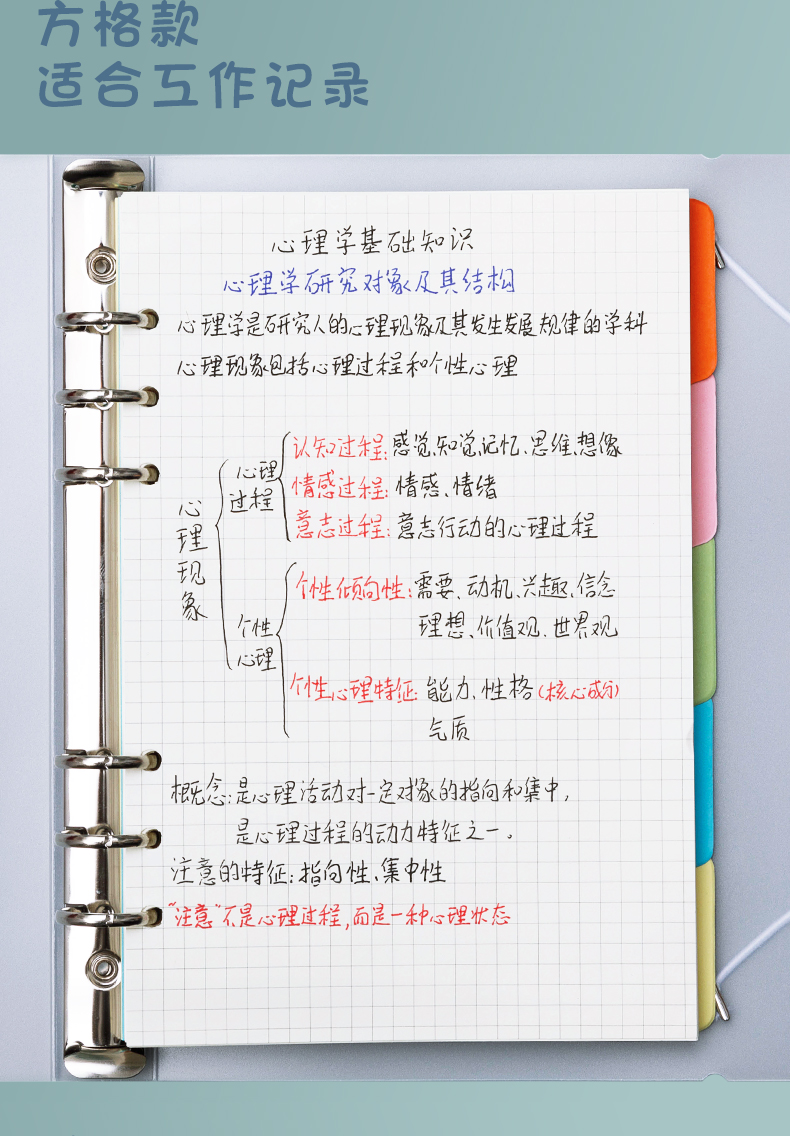 方格款
适合工作记录
心理学基础知识
心理学研究对象及其结构
心理学是研究人的心理现象及其发生发展规律的学科
心理现象包括心理过程和个性心理
心理现象
心理过程
认知过程:感觉、知觉、记忆、思维、想像
情感过程:情感、情绪
意志过程:意志行动的心理过程
个性心理
个性倾向性:需要、动机、兴趣、信念
理想、价值观、世界观
个性心理特征:能力、性格(核心成分)
气质
概念:是心理活动对一定对象的指向和集中,
是心理过程的动力特征之一。
注意的特征:指向性、集中性
“注意”不是心理过程,而是一种心理状态